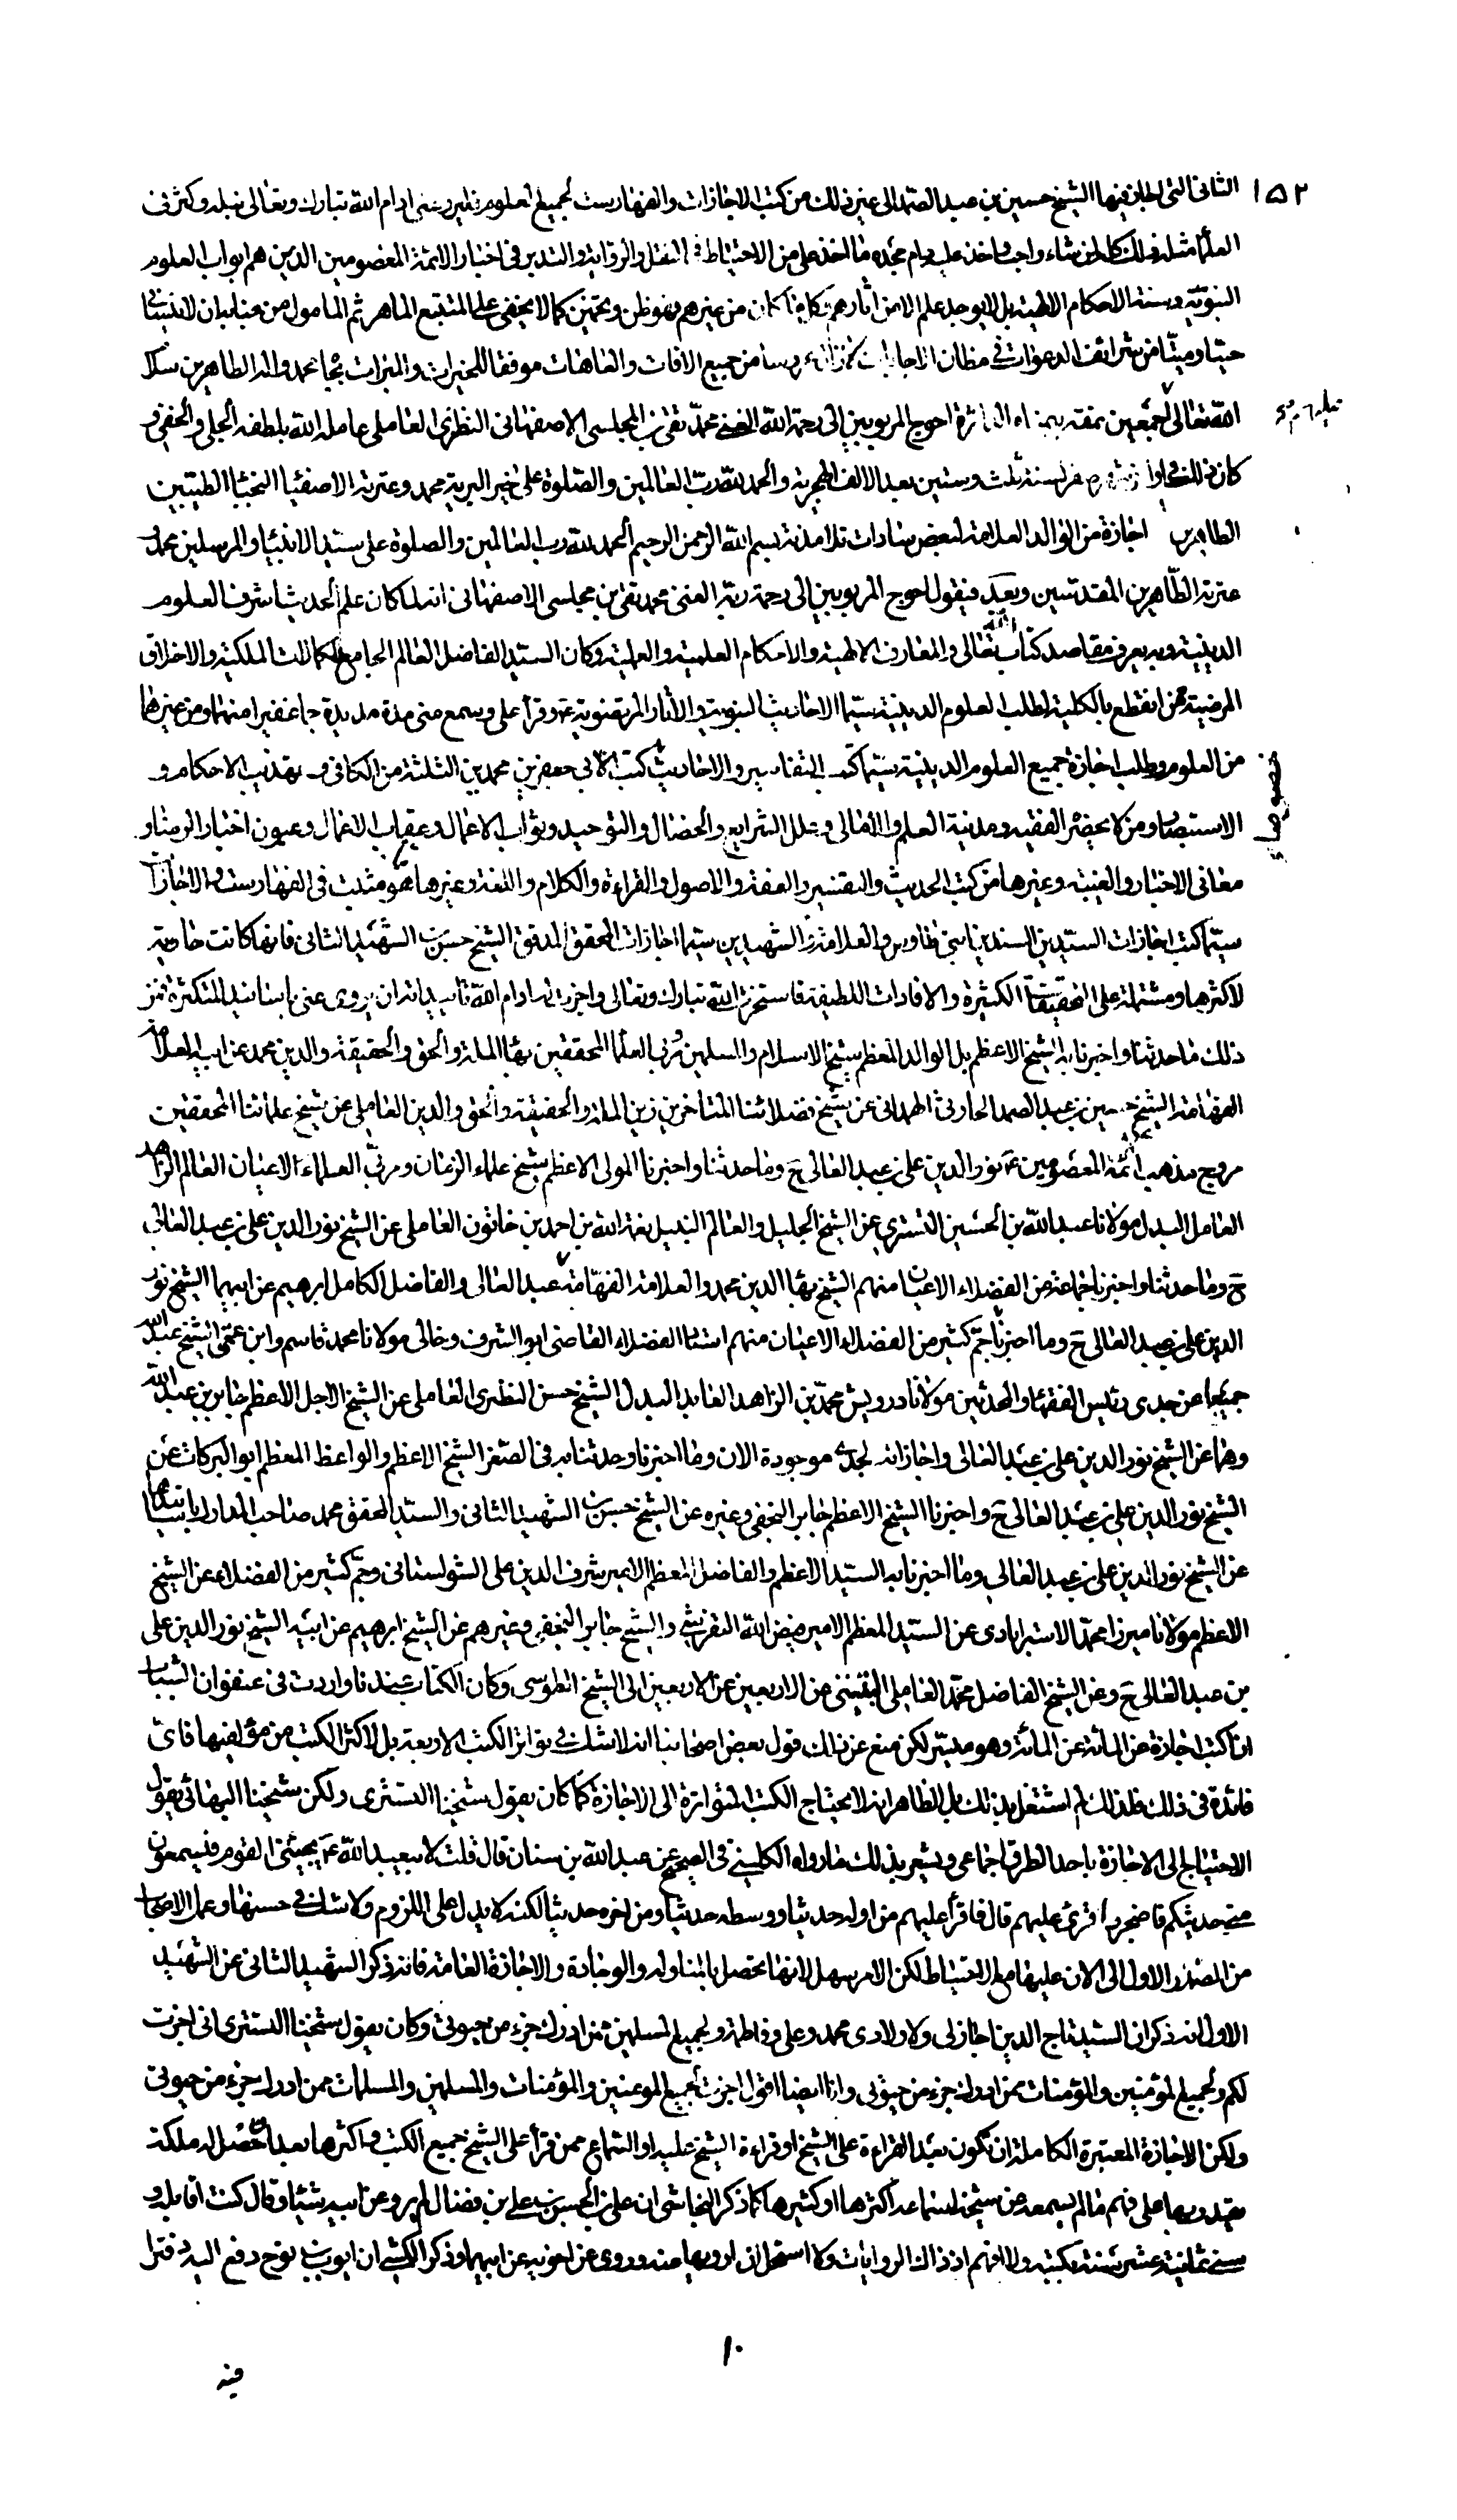 ١٥٢
الثانى التى اجاز فيها الشيخ حسين بن عبد الصمد الى غير ذلك من كتب الاجازات والفهارست لجميع العلوم ادام الله تبارك وتعالى نبله وكثر فى
العلماء مثله فله ذلك كله لمن شاء واحب واخذ عليه دام مجده ما اخذ على من الاحتياط فى النقل والرواية والتدبر فى اخبار الائمة المعصومين الذين هم ابواب العلوم
النبوية الاحكام الالهية بل لا يوجد علم الا من اثارهم كان من غيرهم فهو ظن وتخمين كما لا يخفى على المتتبع الماهر ثم المامول من جنابه ان لا ينسانى
حيا وميتا من شرائف الدعوات فى مظان الاجابات من جميع الافات والعاهات موفقا للخيرات والمبرات بجاه محمد واله الطاهرين سلام
الله تعالى عليهم اجمعين نمقه بيمناه الداثرة احوج المربوبين الى رحمة الله الغنى محمد تقى بن المجلسى الاصفهانى النظنزى العاملى عامله الله بلطفه الجلى والخفى و
كان ذلك فى سنة ثلث وستين بعد الالف الهجرية والحمد لله رب العالمين والصلوة على خير البرية محمد وعترته الاصفياء النجباء الطيبين
الطاهرين اجازة من الوالد العلامة لبعض سادات تلامذته بسم الله الرحمن الرحيم الحمد لله رب العالمين والصلوة على سيد الانبياء والمرسلين محمد و
عترته الطاهرين المقدسين وبعد فيقول احوج المربوبين الى رحمة ربه الغنى محمد تقى بن مجلسى الاصفهانى انه لما كان علم الحديث اشرف العلوم
الدينية وبه يعرف مقاصد كتاب الله تعالى والمعارف الالهية والاحكام العلمية والعملية وكان السيد الفاضل العالم الجامع للكمالات الملكية والاخلاق
المرضية ممن انقطع بالكلية لطلب العلوم الدينية سيما الاحاديث النبوية والاثار المرتضوية وقرأ على وسمع منى مدة مديدة جما غفيرا منها ومن غيرها
من العلوم وطلب اجازة جميع العلوم الدينية سيما كتب التفاسير والاحاديث خصوصا كتب الابى جعفرين محمدين الثلثة من الكافى وتهذيب الاحكام و
الاستبصار ومن لا يحضره الفقيه ومدينة العلم والامالى وعلل الشرايع والخصال والتوحيد وثواب الاعمال وعقاب الاعمال وعيون اخبار الرضا و
معانى الاخبار والغيبة وغيرها من كتب الحديث والتفسير والفقه والاصول والقراءة والكلام واللغة وغيرها مما هو مثبت فى الفهارست والاجازات
سيما كتب اجازات السيدين السندين ابنى طاوس والعلامة والشهيدين سيما اجازات المحقق المدقق الشيخ حسن بن الشهيد الثانى فانها كانت حاوية
لاكثرها ومشتملة على التحقيقات الكثيرة والافادات اللطيفة فاستخرت الله تبارك وتعالى واجزت له ادام الله تأييداته ان يروى عنى باسانيدى المتكثرة فمن
ذلك ما حدثنا واخبرنا به الشيخ الاعظم بل الوالد المعظم شيخ الاسلام والمسلمين ومربى العلماء المحققين بهاء الملة والحق والحقيقة والدين محمد عن ابيه العلامة
الفهامة الشيخ حسين بن عبد الصمد الحارثى الهمدانى عن شيخ فضلائنا المتاخرين زين الملة والحقيقة والحق والدين العاملى عن شيخ علمائنا المحققين
مروج مذهب ائمة المعصومين نور الدين على بن عبد العالى ح وما حدثنا واخبرنا المولى الاعظم شيخ علماء الزمان ومربى العلماء الاعيان العالم الزاهد
العامل البدل مولانا عبد الله بن الحسين التسترى عن الشيخ الجليل والعالم النبيل نعمة الله بن احمد بن خاتون العاملى عن الشيخ نور الدين على بن عبد العالى
ح وما حدثنا واخبرنا جماعة من الفضلاء الاعيان منهم الشيخ بهاء الدين محمد والعلامة الفهامة عبد العالى والفاضل الكامل ابرهيم عن ابيهما الشيخ نور
الدين على بن عبد العالى ح وما اخبرنا جم كثير من الفضلاء الاعيان منهم استاذ الفضلاء القاضى ابو الشرف وخالى مولانا محمد قاسم وابن عمتى الشيخ عبد الله
جميعا عن جدى رئيس الفقهاء والمحدثين مولانا درويش محمد بن الزاهد العابد البدل الشيخ حسن النظنزى العاملى عن الشيخ الاجل الاعظم جابر بن عبد الله
وهما عن الشيخ نور الدين على بن عبد العالى واجازاته لجدى موجودة الان وما اخبرنا وحدثنا به فى الصغر الشيخ الاعظم والواعظ المعظم ابو البركات عن
الشيخ نور الدين على بن عبد العالى ح واخبرنا الشيخ الاعظم جابر النجفى وغيره عن الشيخ حسن بن الشهيد الثانى والسيد المحقق محمد صاحب المدارك باسنادهما
عن الشيخ نور الدين على بن عبد العالى وما اخبرنا به السيد الاعظم والفاضل المعظم الامير شرف الدين على الشولستانى وجم كثير من الفضلاء عن الشيخ
الاعظم مولانا ميرزا محمد الاسترابادى عن السيد المعظم الامير فيض الله التفريشى والشيخ جابر النجفى وغيرهم عن الشيخ ابرهيم عن ابيه الشيخ نور الدين على
بن عبد العالى ح وعن الشيخ الفاضل محمد العاملى عن الاربعين عن الاربعين الى الشيخ الطوسى وكان الكتاب عندنا واردت فى عنفوان الشباب
ان اكتب اجازة عن المائة عن المائة وهو ميسر لكن منع عن ذلك قول بعض اصحابنا انه لا شك فى تواتر الكتب الاربعة بل الاكثر الكتب من مؤلفيها فاى
فائدة فى ذلك فلذلك لم اشتغل بذلك بل الظاهر انه لا يحتاج الكتب المتواترة الى الاجازة كما كان يقول شيخنا التسترى ولكن شيخنا البهائى يقول
الاحتياج الى الاجازة باحد الطرق اجماعى ويشعر بذلك ما رواه الكلينى فى الصحيح عن عبد الله بن سنان قال قلت لابيعبد الله يجيئنى القوم فيسمعون
منى حديثكم فاضجر اقرئ عليهم قال فاقرأ عليهم من اوله حديثا ووسطه حديثا ومن اخره حديثا لكنه لا يدل على اللزوم ولا شك فى حسنها وعمل الاصحاب
من الصدر الاول الى الان عليها مع الاحتياط لكن الامر سهل لانها تحصل بالمناوله والوجادة والاجازة العامة فانه ذكر الشهيد الثانى عن الشهيد
الاول انه ذكر ان السيد تاج الدين اجاز لى ولاولادى محمد وعلى وفاطمة ولجميع المسلمين ممن ادرك جزء من حيوتى وكان يقول شيخنا التسترى انى اجزت
لكم ولجميع المؤمنين والمؤمنات ممن ادرك جزء من حيوتى وانا ايضا اقول اجزت لجميع المومنين والمؤمنات والمسلمين والمسلمات ممن ادرك جزء من حيوتى
ولكن الاجازة المعتبرة الكاملة ان تكون بعد القراءة على الشيخ او قراءة الشيخ عليه او السماع ممن قرأ على الشيخ جميع الكتب او اكثرها بعد ما حصل له ملكة
يقتدر بها على فهم ما لم يسمعه من شيخه لسماعه اكثرها او كثيرها كما ذكر النجاشى ان على بن الحسن بن على بن فضال لم يرو عن ابيه شيئا وقال كنت اقابله و
سنى ثمانية عشر سنة بكتبه ولا افهم اذ ذاك الروايات ولا استحل ان ارويها عنه وروى عن اخويه عن ابيهما وذكر الكشى ان ايوب بن نوح دفع اليه دفترا
١٠
فيه